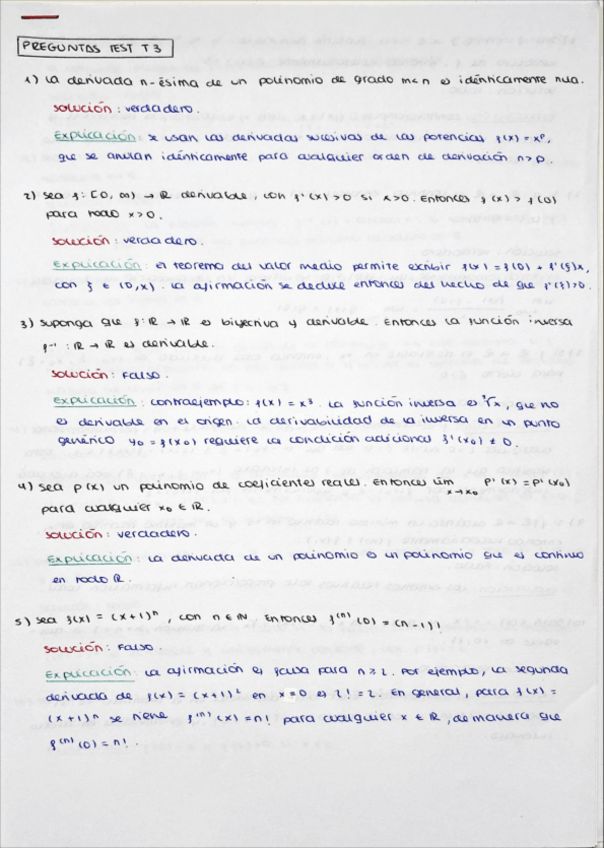 PREGUNTAS TEST T3
1) La derivada n-ésima de un polinomio de grado m<n es idénticamente nula.
Solución: verdadero.
Explicación: se usan las derivadas sucesivas de las potencias f(x) = xᵖ,
que se anulan idénticamente para cualquier orden de derivación n>p.
2) Sea f: [0, ∞) → ℝ derivable, con f'(x) > 0 si x>0. Entonces f(x) > f(0)
para todo x>0.
Solución: verdadero.
Explicación: el teorema del valor medio permite escribir f(x) = f(0) + f'(ξ)x,
con ξ ∈ (0,x). La afirmación se deduce entonces del hecho de que f'(ξ)>0.
3) Suponga que f: ℝ → ℝ es biyectiva y derivable. Entonces la función inversa
f⁻¹ : ℝ → ℝ es derivable.
Solución: Falso.
Explicación: contraejemplo: f(x) = x³. La función inversa es ³√x, que no
es derivable en el origen. La derivabilidad de la inversa en un punto
genérico y₀ = f(x₀) requiere la condición adicional f'(x₀) ≠ 0.
4) Sea P(x) un polinomio de coeficientes reales. Entonces lim x→x₀ P'(x) = P'(x₀)
para cualquier x₀ ∈ ℝ.
Solución: verdadero.
Explicación: la derivada de un polinomio es un polinomio que es continuo
en todo ℝ.
5) Sea f(x) = (x+1)ⁿ, con n ∈ ℕ. Entonces f⁽ⁿ⁾(0) = (n-1)!
Solución: Falso.
Explicación: La afirmación es falsa para n ≥ 2. Por ejemplo, la segunda
derivada de f(x) = (x+1)² en x=0 es 2! = 2. En general, para f(x) =
(x+1)ⁿ se tiene f⁽ⁿ⁾(x) = n! para cualquier x ∈ ℝ, de manera que
f⁽ⁿ⁾(0) = n!.